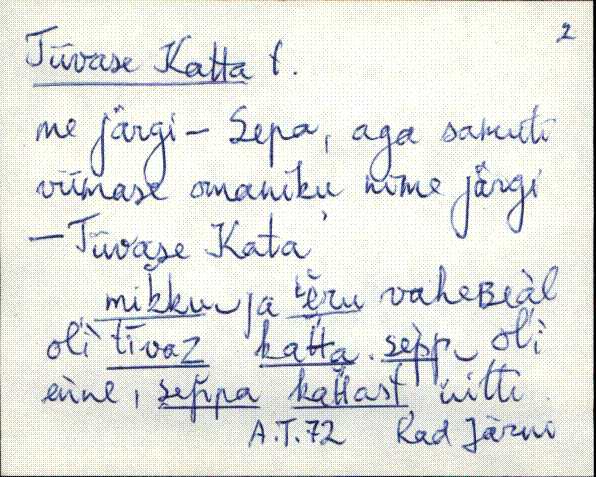 2
Tüvase Katta t.
me järgi – Sepa, aga samuti
viimase omaniku nime järgi
– Tüvase Kata
mikku ja ēru vaheʙeàl
oľì tīvaz katta. sèpp oľi
eìne, seppa kattast üitti
A.T. 72 Rad Järve